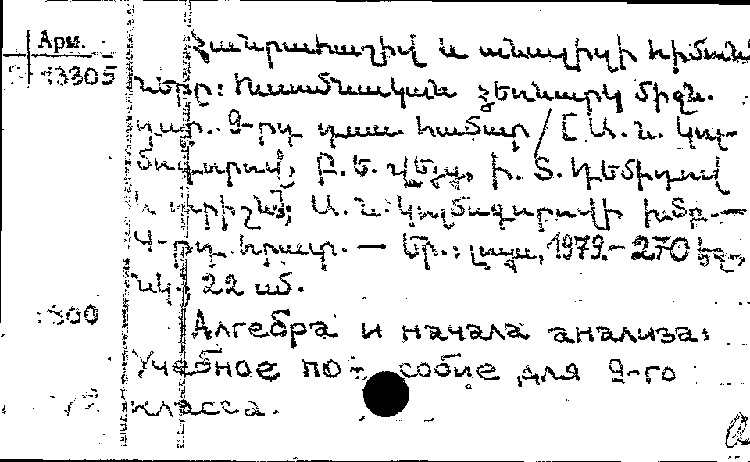 Арм.
13305
Հանրահաշիվ և անալիզի հիմունք
ները: Ուսումնական ձեռնարկ միջն.
դպր. 9-րդ դաս. համար / [Ա. Ն. Կոլ-
մոգորով, Բ. Ե. Վեյց, Ի. Տ. Դեմիդով
և ուրիշն.]; Ա. Ն. Կոլմոգորովի խմբ.—
4-րդ հրատ. — Եր.: Լույս, 1979.- 270 էջ,
նկ.; 22 սմ.
Алгебра и начала анализа:
Учебное пособие для 9-го
класса.